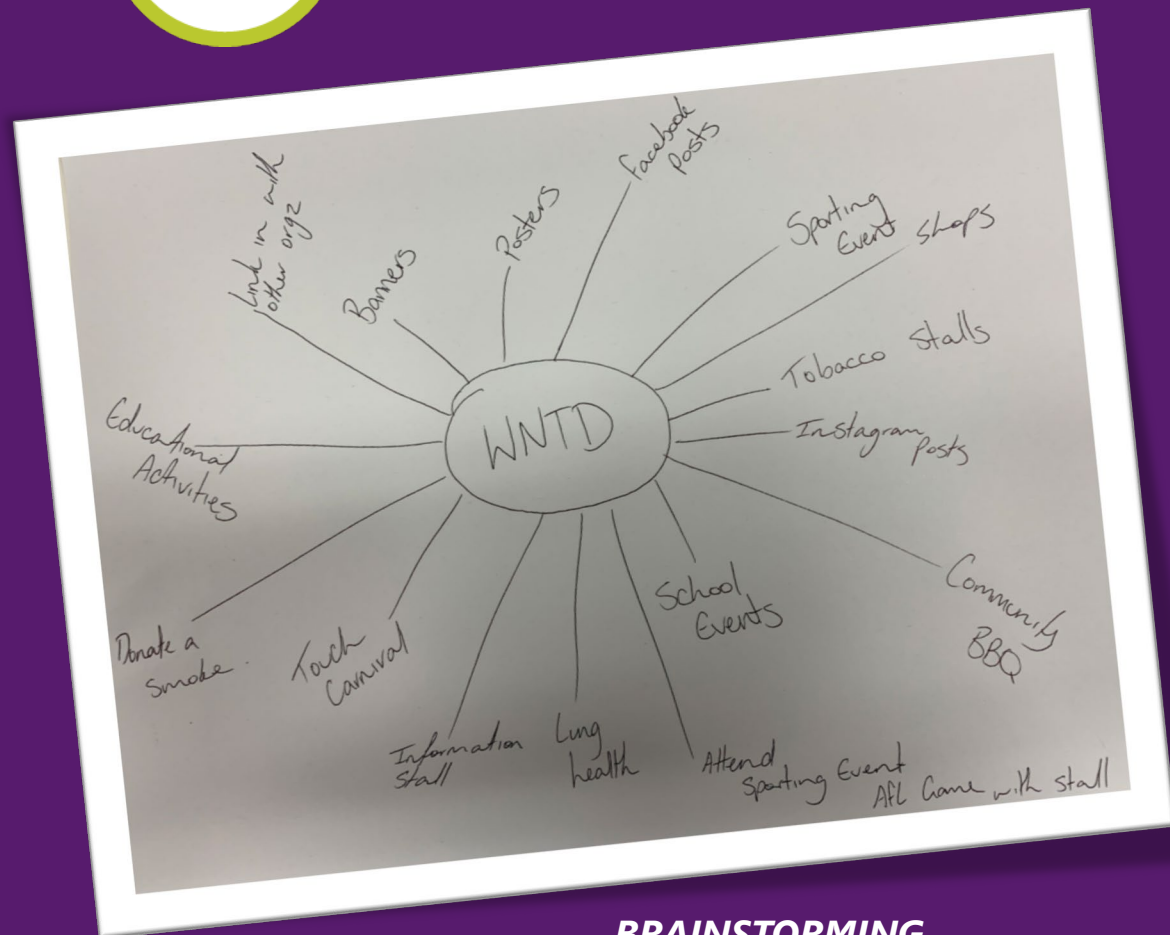 Link in with
other orgz
Banners
Posters
Facebook
Posts
Sporting
Event
Shops
Tobacco Stalls
Instagram
Posts
Community
BBQ
School
Events
Attend
Sporting Event
AFL Game with stall
Lung
health
Information
Stall
Touch
Carnival
Donate a
Smoke.
Educational
Activities
WNTD
BRAINSTORMING